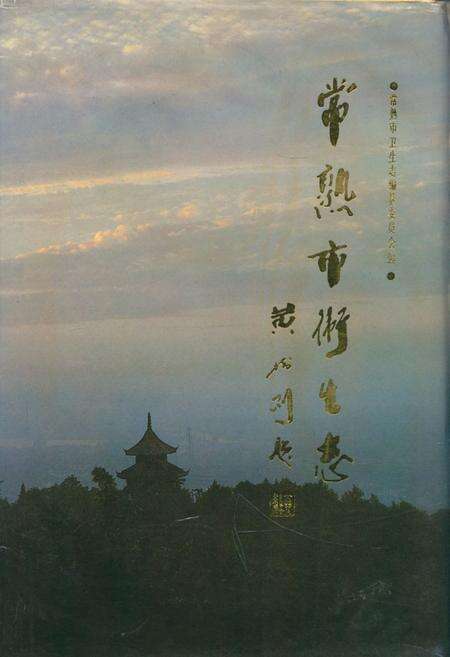 常熟市卫生志编纂委员会编
常熟市衛生志